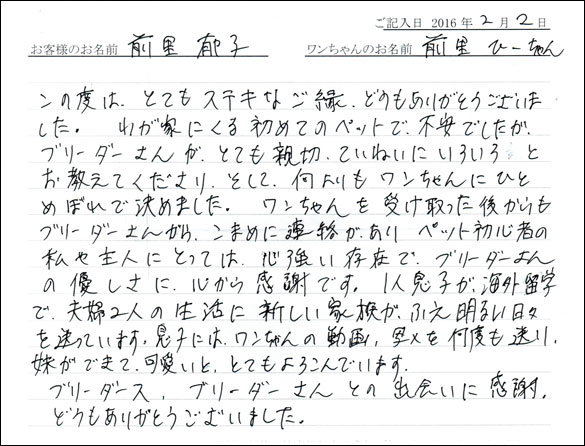 ご記入日 2016 年 2 月 2 日
お客様のお名前 前里 郁子 ワンちゃんのお名前 前里 ひーちゃん
この度は、とてもステキなご縁、どうもありがとうございま
した。 わが家にくる初めてのペットで、不安でしたが、
ブリーダーさんが、とても親切、ていねいにいろいろと
お教えてくださり、そして、何よりもワンちゃんにひと
めぼれで決めました。 ワンちゃんを受け取った後からも
ブリーダーさんから、こまめに連絡があり ペット初心者の
私や主人にとっては、心強い存在で、ブリーダーさん
の優しさに、心から感謝です。 1人息子が、海外留学
で、夫婦2人の生活に新しい家族が、ふえ 明るい日々
を送っています。息子には、ワンちゃんの動画、写メを何度も送り、
妹ができて、可愛いと、とてもよろこんでいます。
ブリーダース、ブリーダーさんとの出会いに感謝。
どうもありがとうございました。